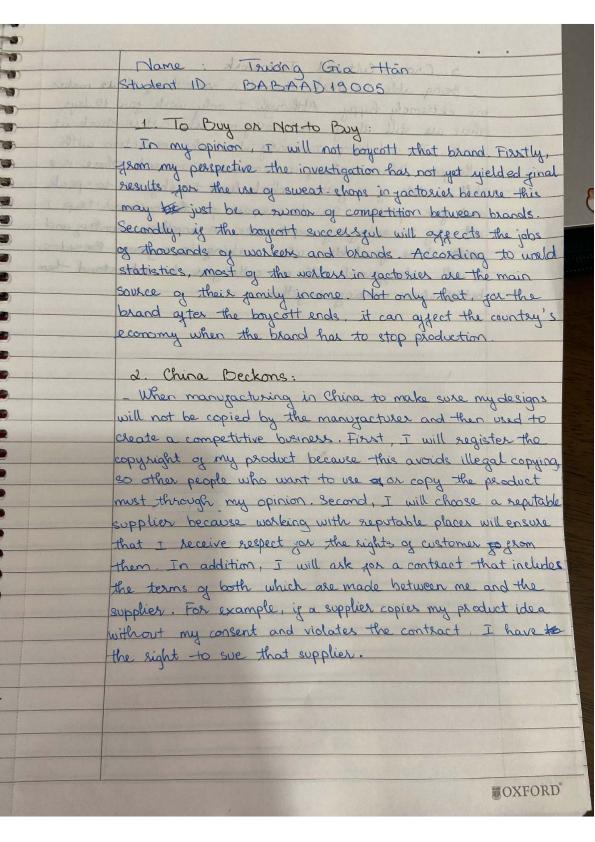 Name : Trương Gia Hân
Student ID BABAAD19005
1. To Buy or Not to Buy:
- In my opinion, I will not boycott that brand. Firstly,
from my perspective the investigation has not yet yielded final
results for the use of sweat-shops in factories because this
may just be a rumor of competition between brands.
Secondly, if the boycott successful will affects the jobs
of thousands of workers and brands. According to world
statistics, most of the workers in factories are the main
source of their family income. Not only that, for the
brand after the boycott ends, it can affect the country's
economy when the brand has to stop production.
2. China Beckons:
- When manufacturing in China to make sure my designs
will not be copied by the manufacturer and then used to
create a competitive business. First, I will register the
copyright of my product because this avoids illegal copying,
so other people who want to use or copy the product
must through my opinion. Second, I will choose a reputable
supplier because working with reputable places will ensure
that I receive respect for the rights of customer from
them. In addition, I will ask for a contract that includes
the terms of both which are made between me and the
supplier. For example, if a supplier copies my product idea
without my consent and violates the contract, I have
the right to sue that supplier.
OXFORD